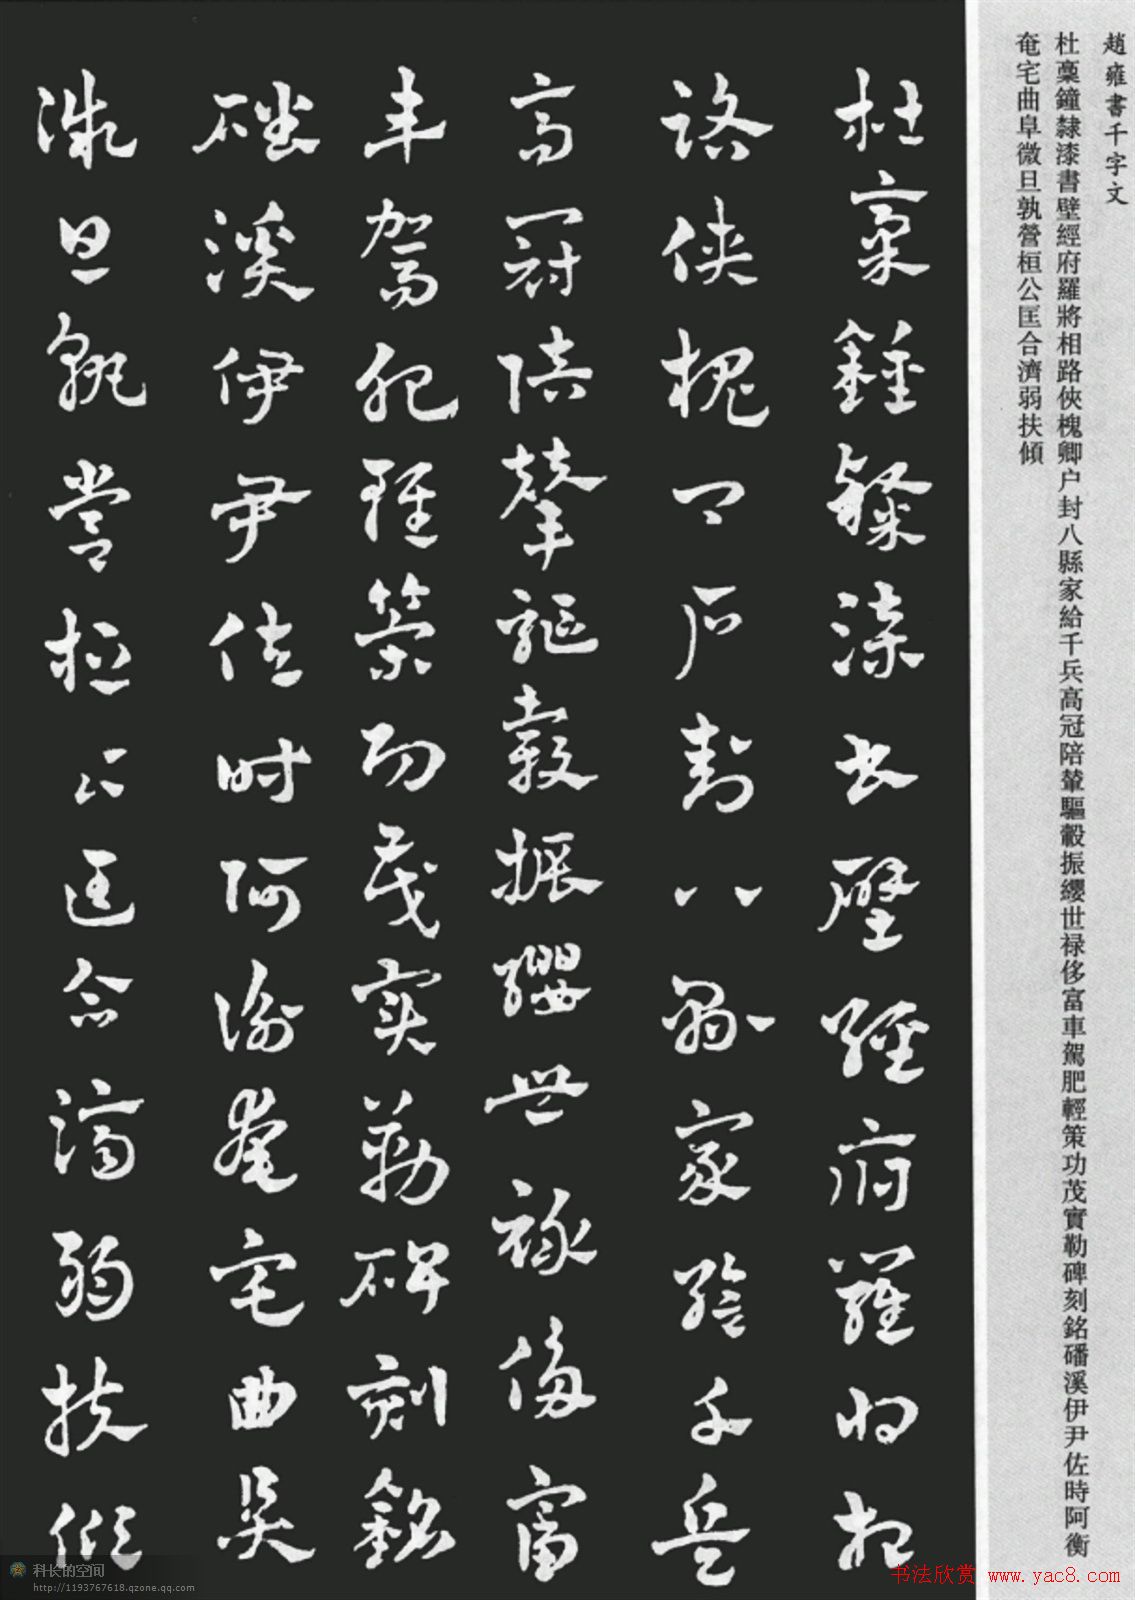 趙雍書千字文
杜稾鐘隸漆書壁經府羅將相路俠槐卿户封八縣家給千兵高冠陪輦驅轂振纓世禄侈富車駕肥輕策功茂實勒碑刻銘磻溪伊尹佐時阿衡
奄宅曲阜微旦孰營桓公匡合濟弱扶傾
杜稾鍾隸漆書壁經府羅將相
路俠槐卿户封八縣家給千兵
高冠陪輦驅轂振纓世禄侈富
車駕肥輕策功茂實勒碑刻銘
磻溪伊尹佐時阿衡奄宅曲阜
微旦孰營桓公匡合濟弱扶傾
科长的空间
http://1193767618.qzone.qq.com
书法欣赏 www.yac8.com